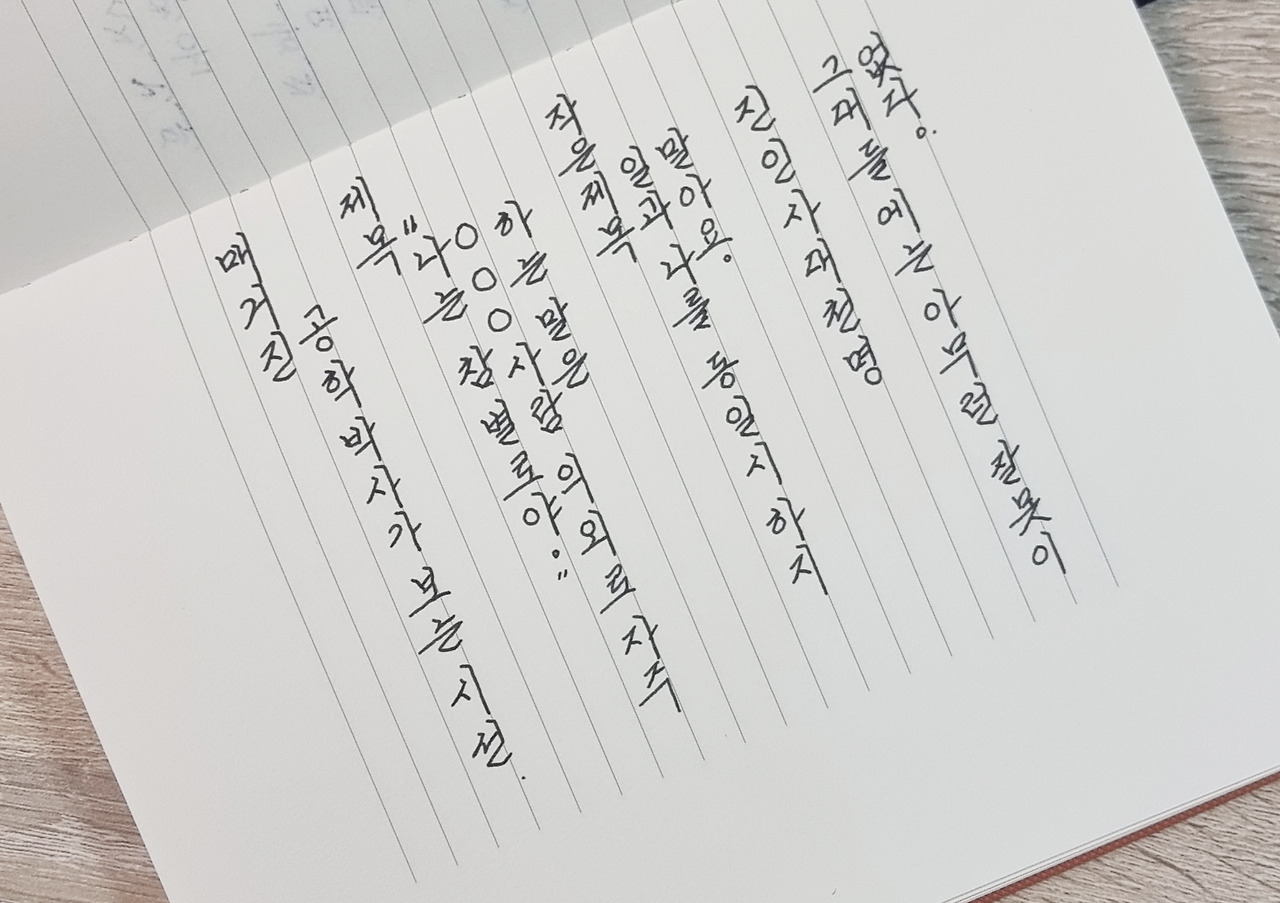 매거진
공학박사가 보는 시선.
제목
"나는 참 별로야."
○○○사람 의외로 자주
하는 말은
작은제목
일과 나를 동일시하지
말아요.
진인사대천명
그대들에는 아무런 잘못이
없다.